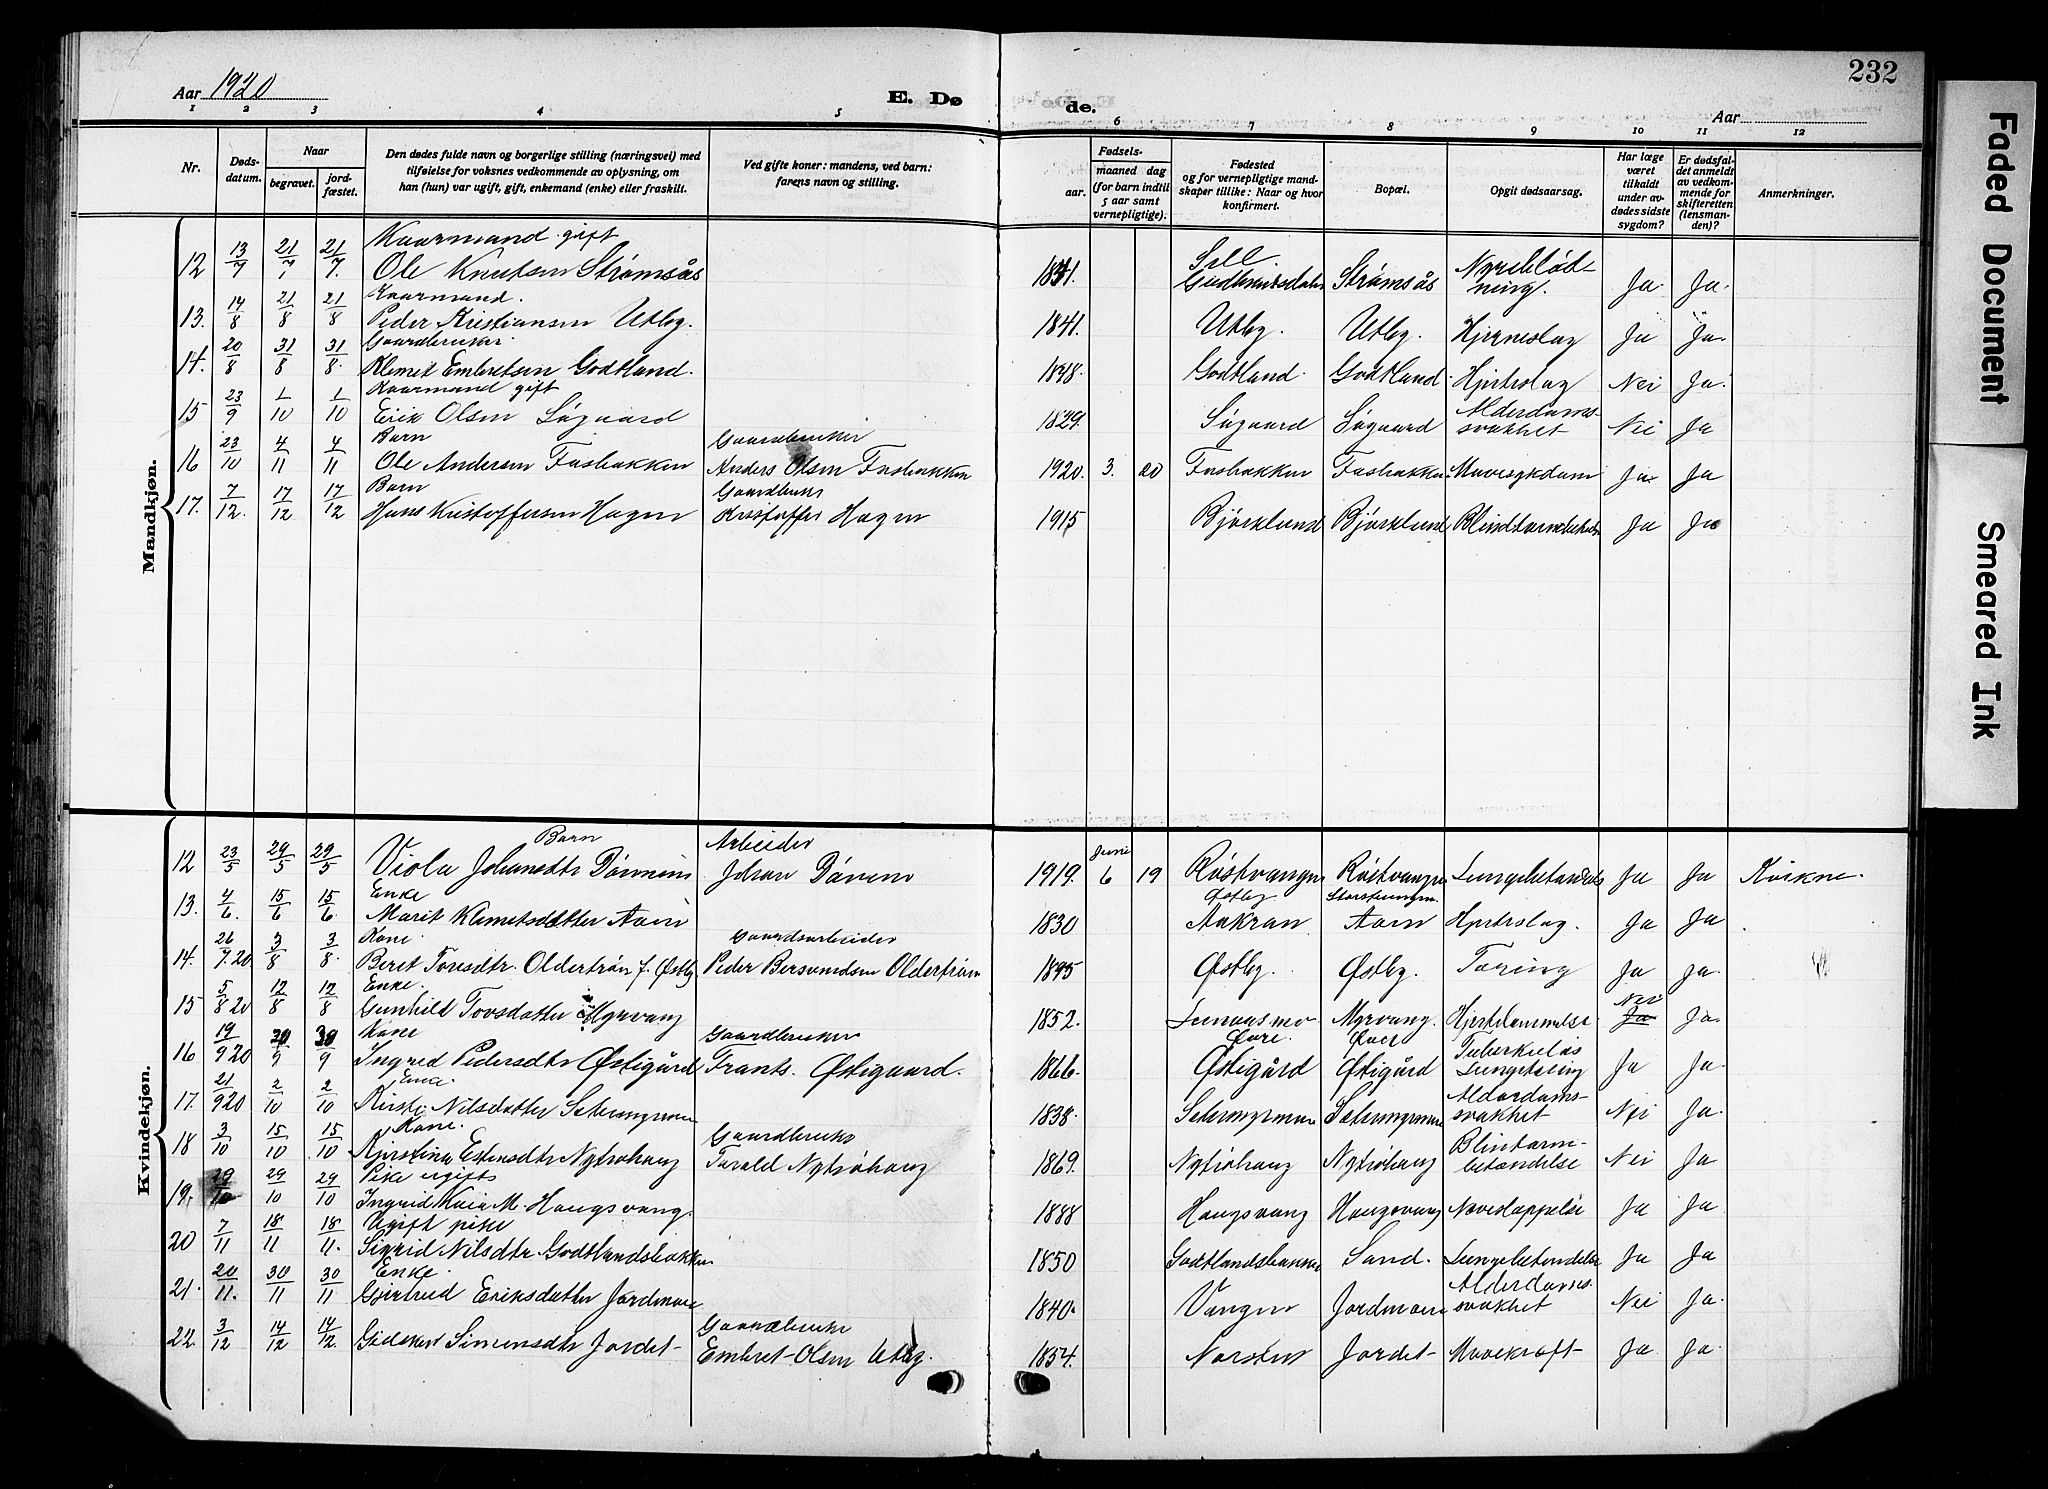 232
Aar 1920
E. Dø
de.
Aar
1 2 3 4 5 6 7 8 9 10 11 12
Nr.
Døds-
datum.
Naar
begravet.
jord-
fæstet.
Den dødes fulde navn og borgerlige stilling (næringsvei) med
tilføielse for voksnes vedkommende av oplysning, om
han (hun) var ugift, gift, enkemand (enke) eller fraskilt.
Ved gifte koner: mandens, ved barn:
farens navn og stilling.
Fødsels-
aar.
maaned dag
(for barn indtil
5 aar samt
vernepligtige).
Fødested
og for vernepligtige mand-
skaper tillike: Naar og hvor
konfirmert.
Bopæl.
Opgit dødsaarsag.
Har læge
været
tilkaldt
under av-
dødes sidste
sygdom?
Er dødsfal-
det anmeldt
av vedkom-
mende for
skifteretten
(lensman-
den)?
Anmerkninger.
Mandkjøn.
Kaarmand gift
12 13/7 21/7 21/7. Ole Knutsen Strømsås 1841. Sell Gudbrandsdalen Strømsås Nyreblød-
ning. Ja. Ja.
Kaarmand.
13. 14/8 21/8 21/8 Peder Kristiansen Utby. 1841. Utby. Utby. Hjerneslag Ja Ja.
Gaardbruker.
14. 20/8 31/8 31/8. Klemet Embretsen Godtland. 1848. Godtland. Godtland. Hjerteslag Nei Ja.
Kaarmand gift
15 23/9 1/10 1/10 Erik Olsen Søgaard 1829. Søgaard Søgaard Alderdoms-
svakhet Nei Ja
Barn Gaardbruker
16 23/10 4/11 4/11 Ole Andersen Fasbakken Anders Olsen Fasbakken 1920. 3. 20 Fasbakken Fasbakken Mavesykdom Ja Ja
Barn Gaardbruker
17. 7/12. 17/12 17/12 Hans Kristoffersen Hagen Kristoffer Hagen 1915 Bjørklund Bjørklund Ja Ja
Kvindekjøn.
Barn Arbeider Juni
12 23/5 29/5 29/5 Viola Johansdtr Johan 1919. 6 19 Røstvangen Røstvangen Lungebetændelse Ja Ja Kvikne.
Enke Østby
13. 4/6. 15/6 15/6. Marit Klemetsdatter Aaen 1830 Aakran Aaen Hjerteslag. Ja Ja
Kone. Gaardsarbeider
14. 26/7.20 3/8 3/8. Beret Toresdtr. Oldertrøn f. Østby Peder Bersvendsen Oldertrøen 1895 Østby. Østby. Tæring Ja Ja.
Enke.
15 5/8 20 12/8 12/8 Gunhild Tovsdatter Myrvang 1852. Lunaasmo Myrvang. Hjertelammelse Nei Ja Ja.
Kone Gaardbruker Øvre. Øvre
16 19/9 20 30/9 30/9 Ingred Pedersdtr Østigård Frants. Østigaard. 1866. Østigård Østigård Tuberkuløs
Lungetæring Ja Ja.
Enke.
17. 21/9 20 2/10 2/10 Kirsti Nilsdatter 1838. Alderdoms-
svakhet Nei Ja.
Kone. Gaardbruker
18 3/10 15/10 15/10 Kjerstina Estensdtr Nytrøhaug Tarald Nytrøhaug 1869. Nytrøhaug Nytrøhaug Blintarm-
betændelse Nei Ja
Pike ugift
19. 29/10 29/10 29/10 Ingrid Kaia M. Haugsvang. 1888 Haugsvang Haugsvang Ja Ja
Ugift pike
20 7/11 18/11 18/11. Sigrid Nilsdtr. Godtlandsbakken 1850 Godtlandsbakken Sand. Lungebetendelse Ja Ja
Enke.
21. 20/11. 30/11 30/11 Gjertrud Eriksdatter Jordmoen 1840. Vangen Jordmoen Alderdoms-
svakhet Nei Ja.
Gaardbruker
22. 3/12 14/12 14/12 Simensdtr Jordet Embret Olsen Utby. 1854. Jordet Mavekræft Ja. Ja.
Faded Document
Smeared Ink